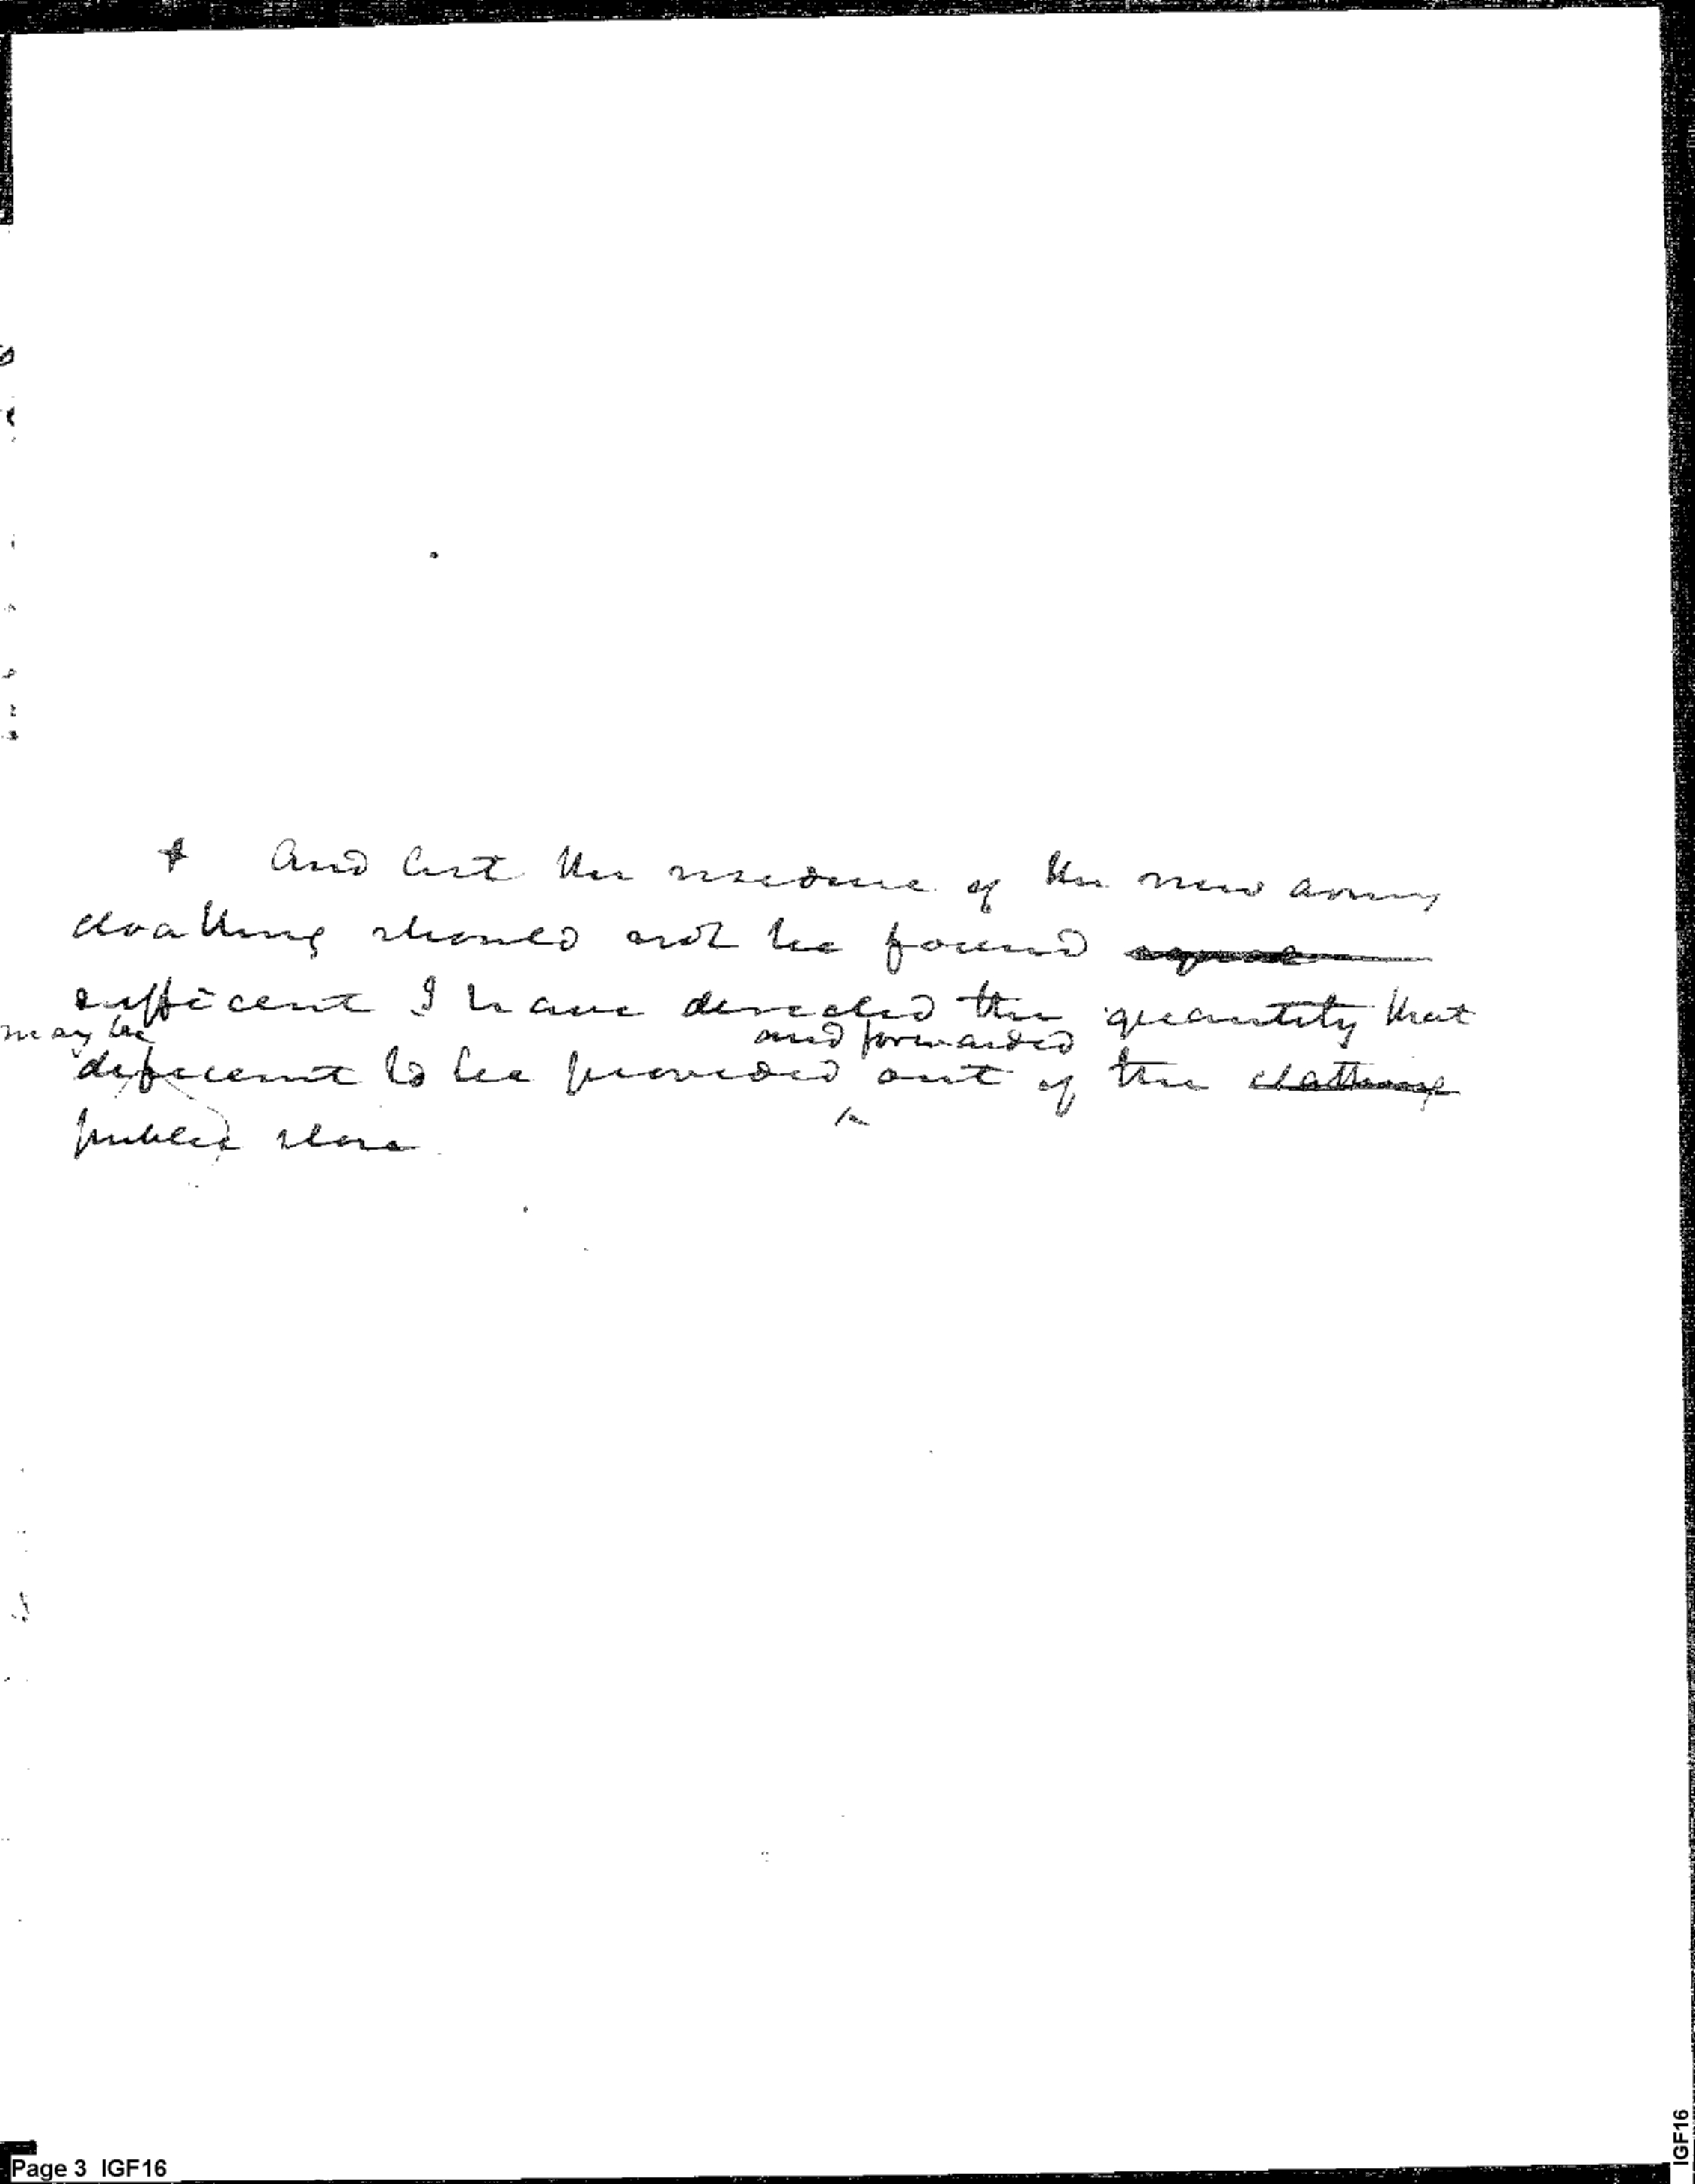 + And lest the residue of the new army
cloathing should not be found equal
sufficent I have directed the quantity that
may be
and forwarded
deficient to be provided out of the cloathing
public store
Page 3 IGF16
IGF16